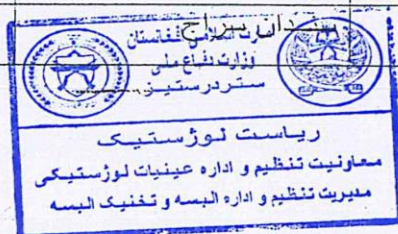 اسلامی افغانستان
وزارت دفاع ملی
ستردرستیز
ریاست لوژستیک
معاونیت تنظیم و اداره عینیات لوژستیکی
مدیریت تنظیم و اداره البسه و تخنیک البسه